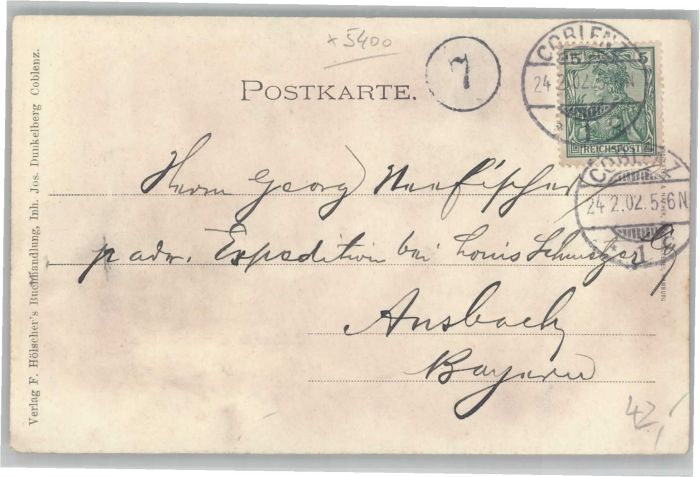 x 5400
7
POSTKARTE.
COBLENZ
24 2.02.5
5 5
REICHSPOST
COBLENZ
24 2.02.5-6N
* 1
Herrn Georg
p adr. Expedition bei Louis Schmetzer
Ansbach
Bayern
42,-
Verlag F. Hölscher's Buchhandlung, Inh. Jos. Dunkelberg Coblenz.